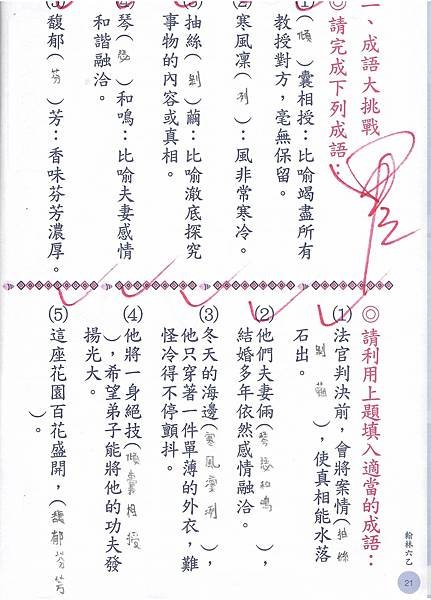 一、成語大挑戰
◎請完成下列成語：
(1)(傾)囊相授：比喻竭盡所有
教授對方，毫無保留。
(2)寒風凜(冽)：風非常寒冷。
(3)抽絲(剝)繭：比喻澈底探究
事物的內容或真相。
(4)琴(瑟)和鳴：比喻夫妻感情
和諧融洽。
(5)馥郁(芬)芳：香味芬芳濃厚。
◎請利用上題填入適當的成語：
(1)法官判決前，會將案情(抽絲
剝繭)，使真相能水落
石出。
(2)他們夫妻倆(琴瑟和鳴)，
結婚多年依然感情融洽。
(3)冬天的海邊(寒風凜冽)，
他只穿著一件單薄的外衣，難
怪冷得不停顫抖。
(4)他將一身絕技(傾囊相授
)，希望弟子能將他的功夫發
揚光大。
(5)這座花園百花盛開，(馥郁芬芳
)。
翰林六乙
21